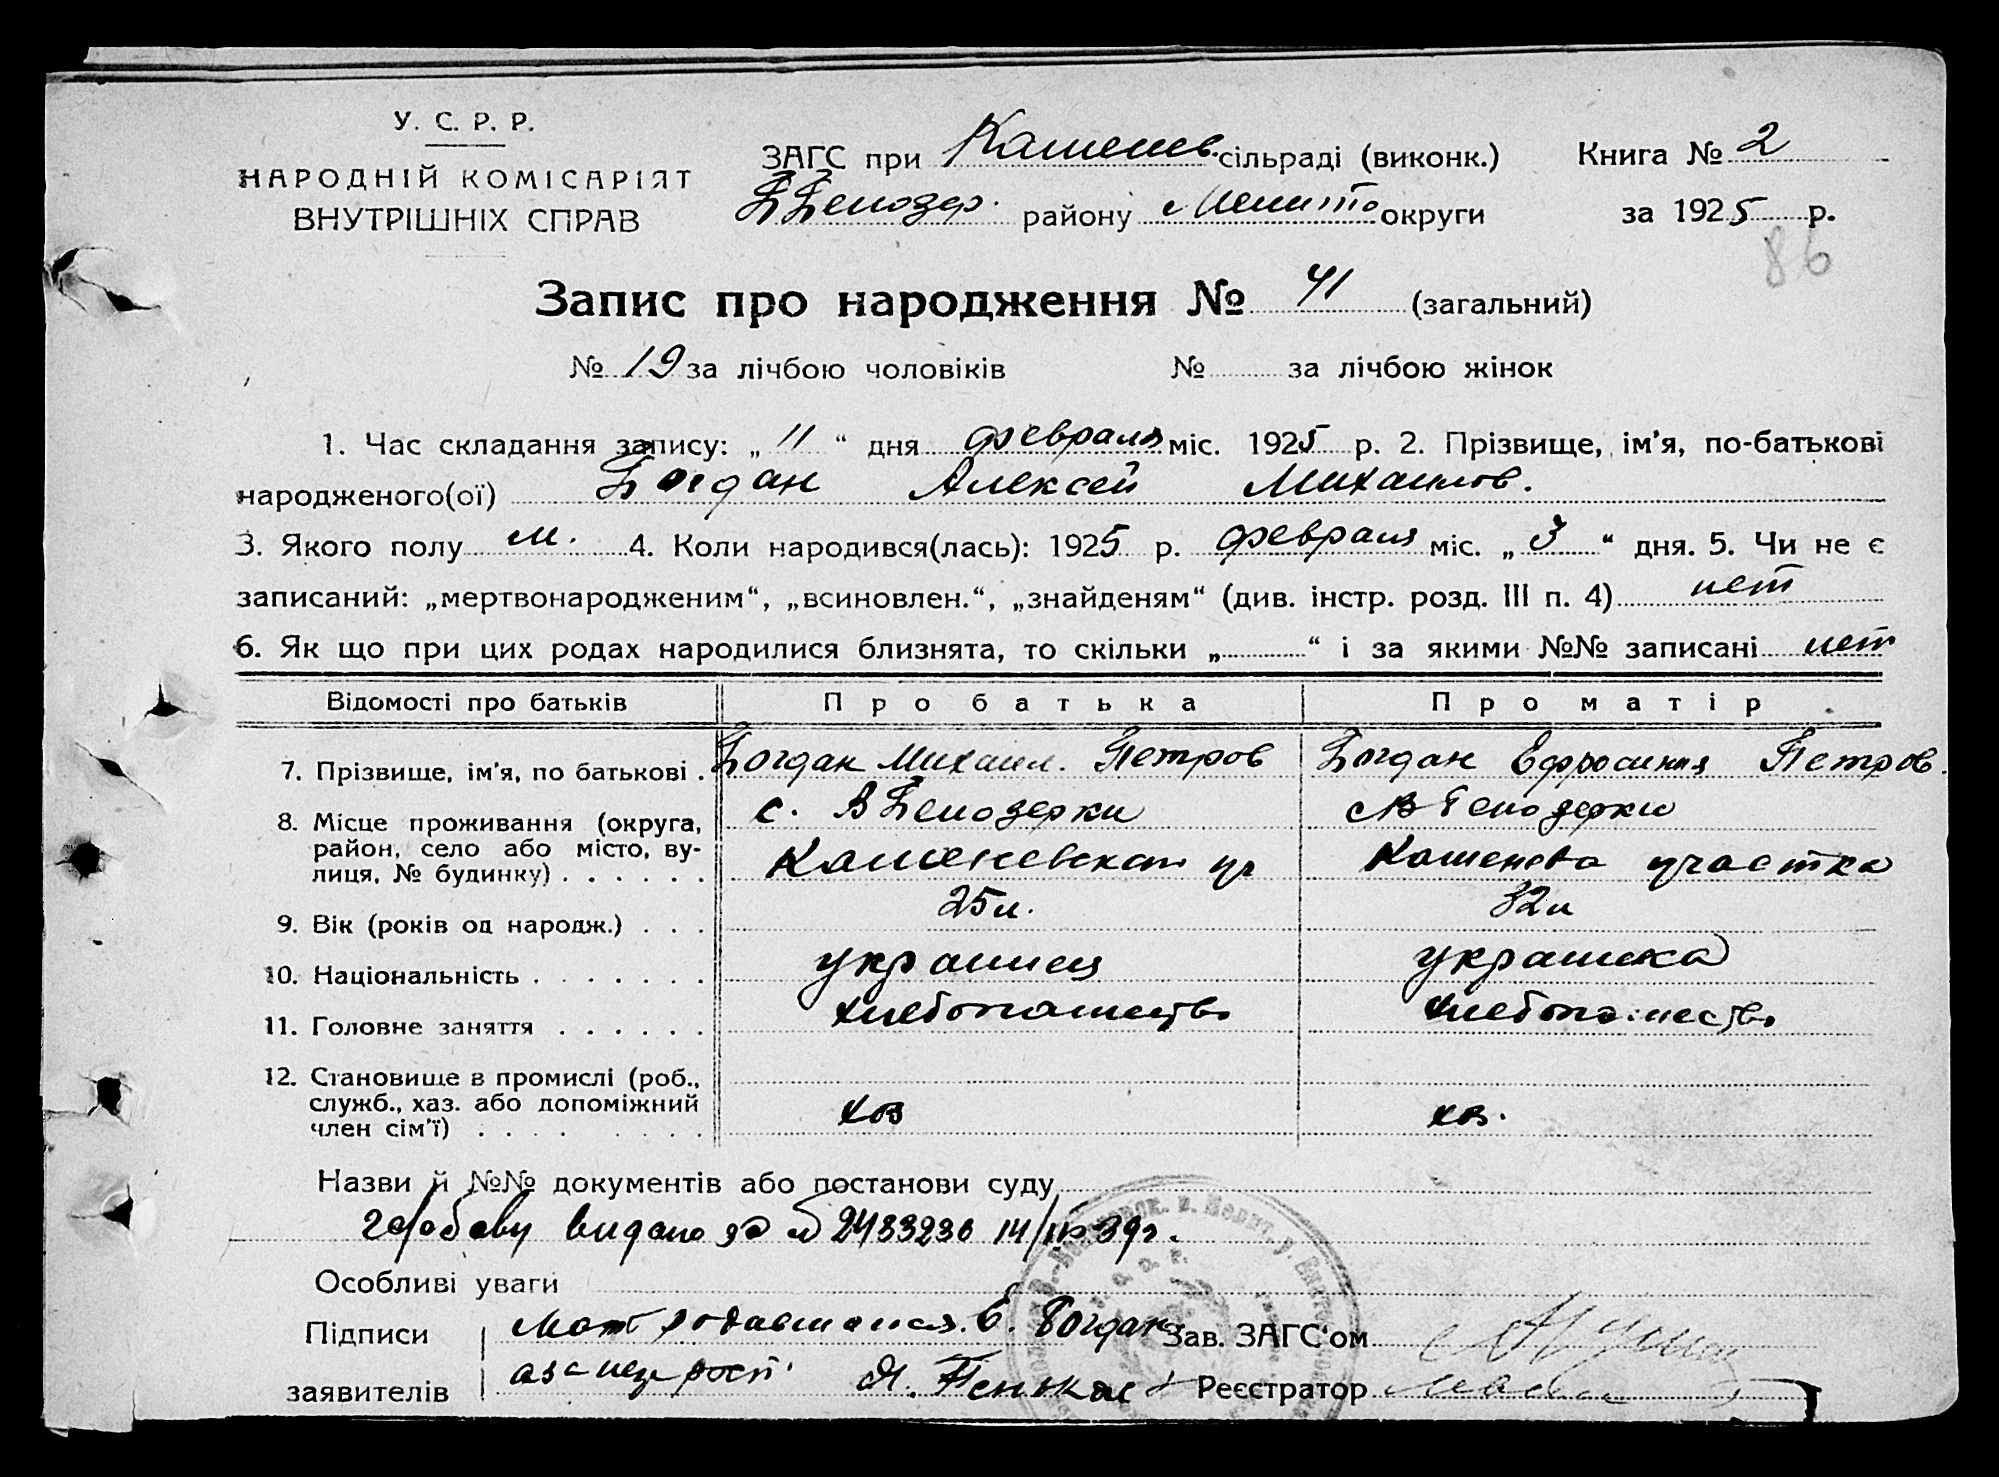 У. С. Р. Р.
НАРОДНІЙ КОМІСАРІЯТ
ВНУТРІШНІХ СПРАВ
ЗАГС при Каменев. сільраді (виконк.)
Книга № 2
ББелозер. району Мелито округи
за 1925 р.
86
Запис про народження № 41 (загальний)
№ 19 за лічбою чоловіків № за лічбою жінок
1. Час складання запису: „ 11 “ дня февраля міс. 1925 р. 2. Прізвище, ім’я, по-батькові
народженого(ої) Богдан Алексей Михаилов.
3. Якого полу м. 4. Коли народився(лась): 1925 р. февраля міс. „ 3 “ дня. 5. Чи не є
записаний: „мертвонародженим“, „всиновлен.“, „знайденям“ (див. інстр. розд. III п. 4) нет
6. Як що при цих родах народилися близнята, то скільки „ “ і за якими №№ записані нет
Відомості про батьків Про батька Про матір
7. Прізвище, ім’я, по батькові . Богдан Михаил. Петров Богдан Ефросиния Петров.
8. Місце проживання (округа, с. В Белозерки с В Белозерки
район, село або місто, ву-
лиця, № будинку) . . . . . . Каменевскаго уч Каменева участка
9. Вік (років од народж.) . . . 25 л. 32 л
10. Національність . . . . . . . украинец украинка
11. Головне заняття . . . . . . хлебопашество хлебопашество
12. Становище в промислі (роб.,
служб., хаз. або допоміжний хоз хоз.
член сім’ї) . . . . . . . .
Назви й №№ документів або постанови суду
видано за № 2433230 14/III 39г.
Особливі уваги
Підписи Мать родавшаяся. Е. Богдан Зав. ЗАГС‘ом
заявителів аза негр рост. Реєстратор